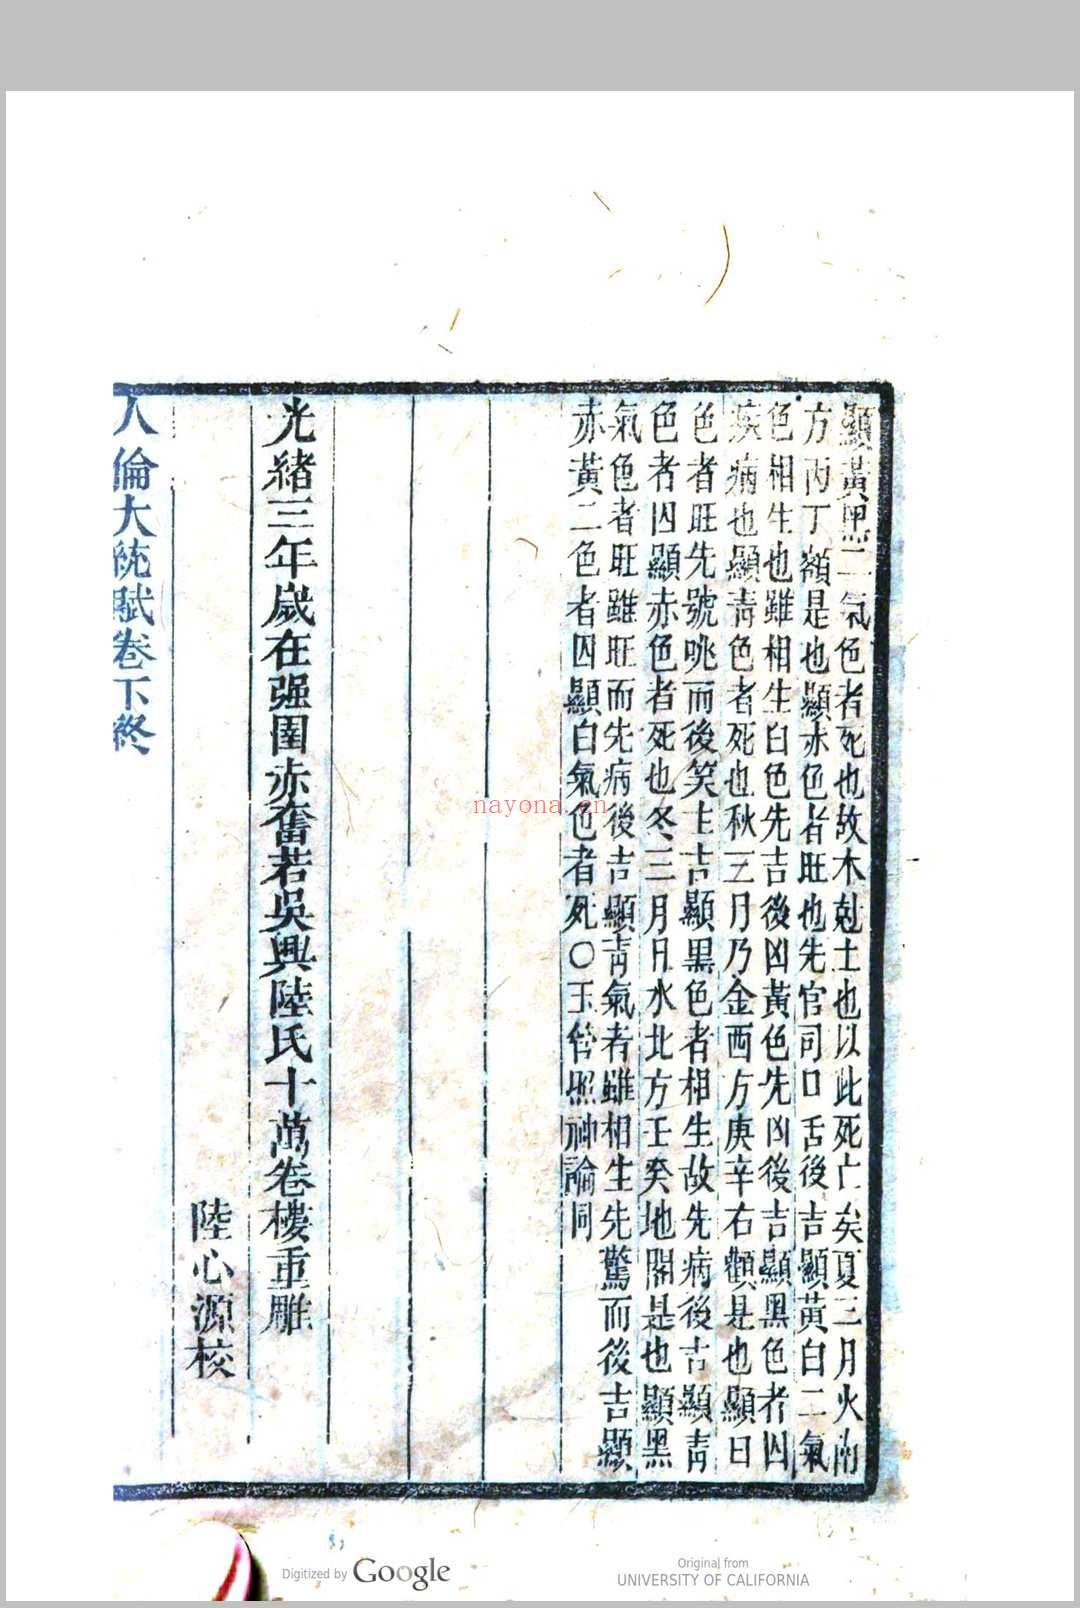 顯黃黑二氣色者死也故木剋土也以此死亡矣夏三月火南
方丙丁額是也顯赤色者旺也先官司口舌後吉顯黃白二氣
色相生也雖相生白色先吉後凶黃色先凶後吉顯黑色者囚
疾病也顯青色者死也秋三月乃金西方庚辛右顴是也顯白
色者旺先號咷而後笑主吉顯黑色者相生故先病後吉顯青
色者囚顯赤色者死也冬三月日水北方壬癸地閣是也顯黑
氣色者旺雖旺而先病後吉顯青氣者雖相生先驚而後吉顯
赤黃二色者囚顯白氣色者死〇玉管照神論同
光緒三年歲在强圉赤奮若吳興陸氏十萬卷樓重雕
陸心源校
人倫大統賦卷下終
nayona.cn
Digitized by Google
Original from
UNIVERSITY OF CALIFORNIA